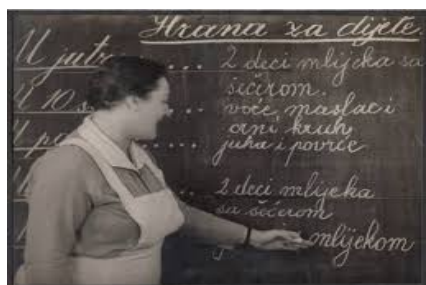 Hrana za dijete.
U jutro .... 2 deci mlijeka sa
šećerom.
U 10 s. .. voće, maslac i
crni kruh
U po ..... juha i povrće
.. 2 deci mlijeka
sa šećerom
mlijekom